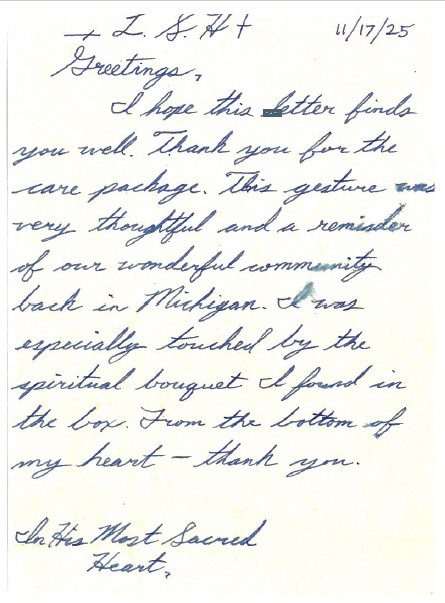 + I. S. H + 11/17/25
Greetings,
I hope this letter finds
you well. Thank you for the
care package. This gesture was
very thoughtful and a reminder
of our wonderful community
back in Michigan. I was
especially touched by the
spiritual bouquet I found in
the box. From the bottom of
my heart – thank you.
In His Most Sacred
Heart,